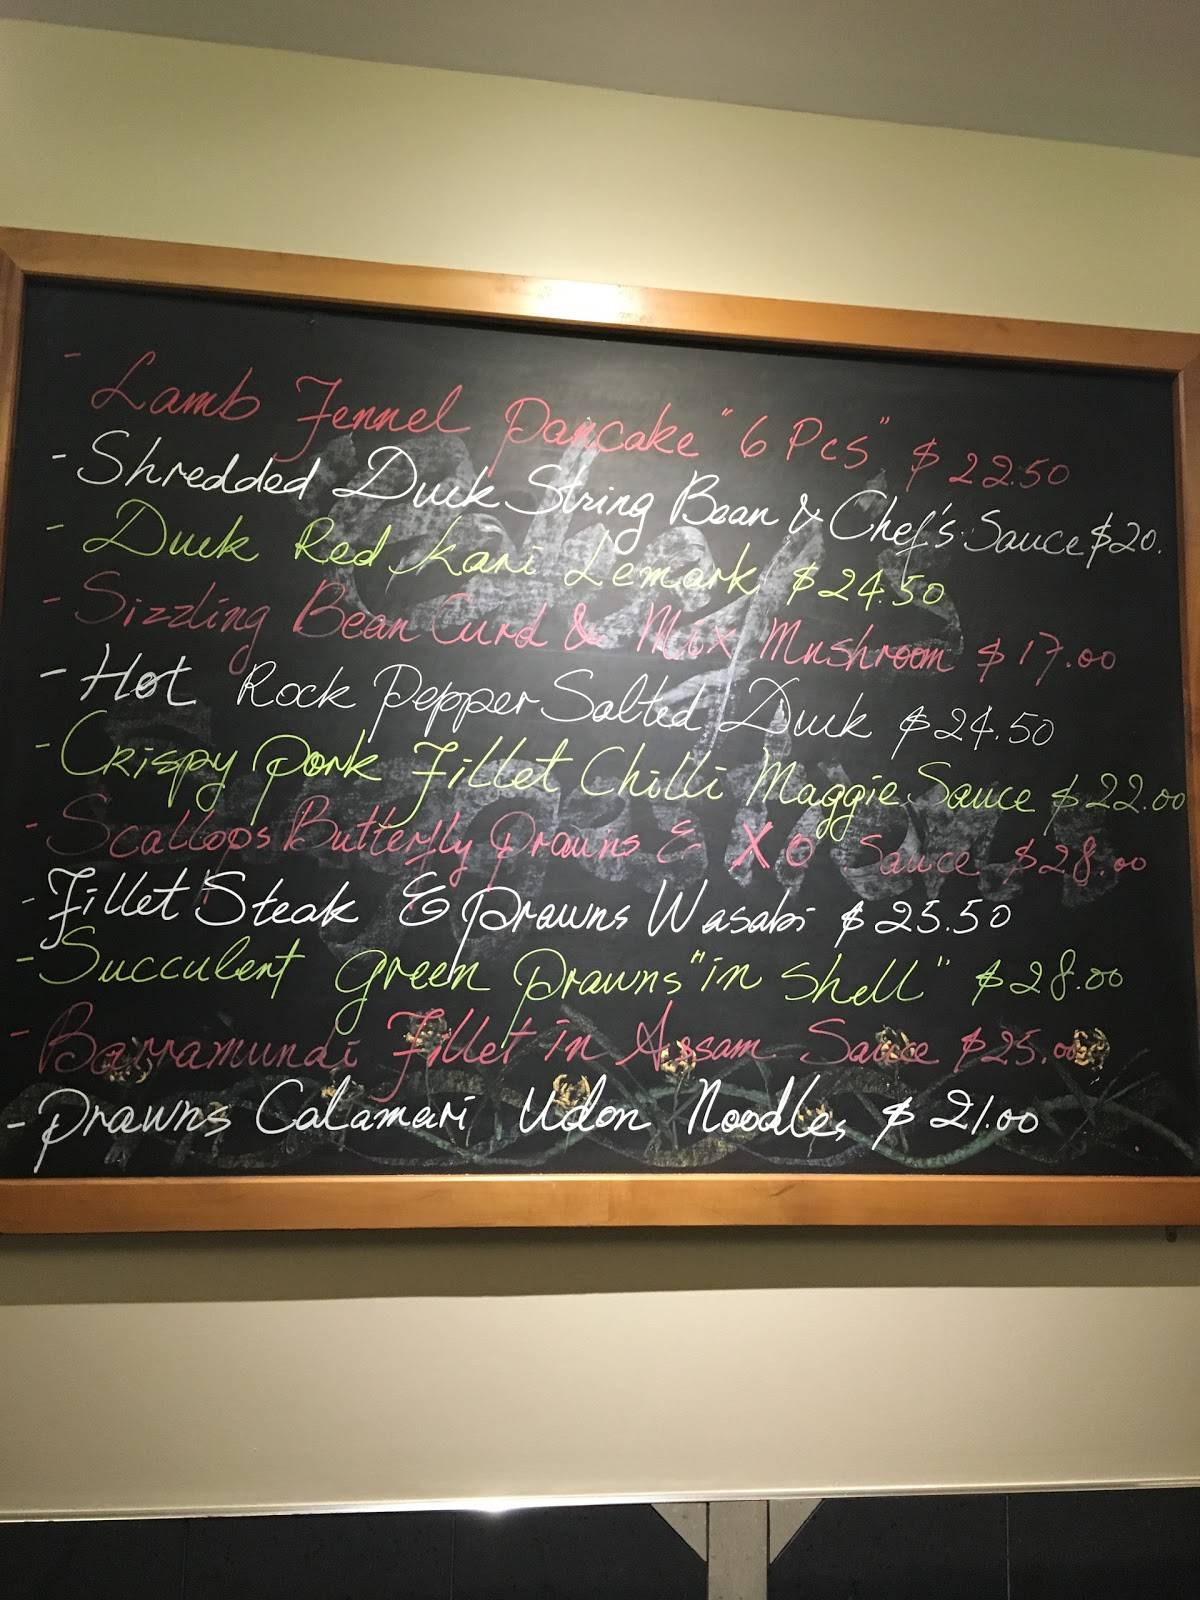 - Lamb Fennel Pancake "6 Pcs" $22.50
- Shredded Duck String Bean & Chef's Sauce $20.
- Duck Red Kari Lemark $24.50
- Sizzling Bean Curd & Mix Mushroom $17.00
- Hot Rock Pepper Salted Duck $24.50
- Crispy Pork Fillet Chilli Maggie Sauce $22.00
- Scallops Butterfly Prawns & XO Sauce $28.00
- Fillet Steak & Prawns Wasabi $25.50
- Succulent green Prawns "in shell" $28.00
- Barramundi Fillet in Assam Sauce $25.00
- Prawns Calamari Udon Noodles $21.00